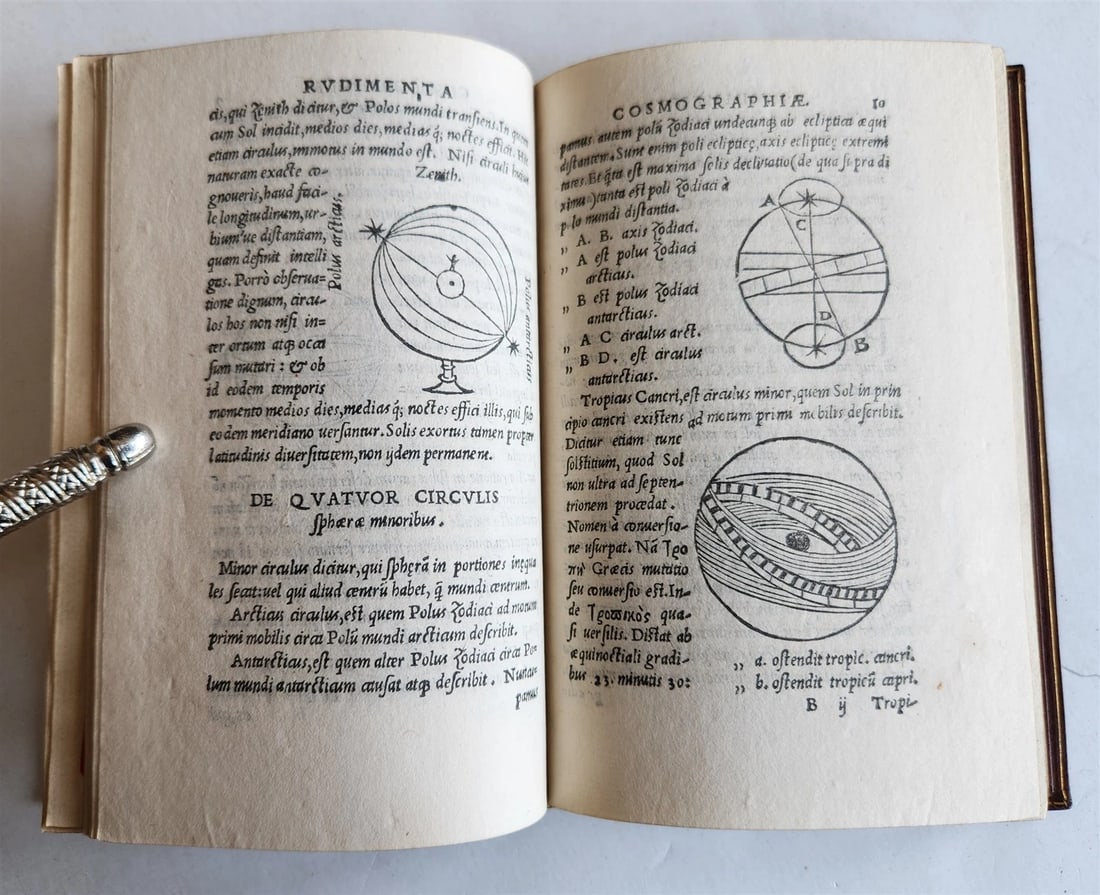 RVDIMENTA
cis, qui Zenith dicitur, & Polos mundi transiens. In quem
cum Sol incidit, medios dies, medias q; noctes efficit. Hic
etiam circulus, immotus in mundo est. Nisi circuli huius
naturam exacte co-
gnoueris, haud faci-
le longitudinum, ur-
bium'ue distantiam,
quam definit intelli
ges. Porrò obserua=
tione dignum, circu-
los hos non nisi in=
ter ortum atq; occa
sum mutari : & ob
id eodem temporis
Zenith.
Polus arcticus.
Polus antarcticus
momento medios dies, medias q; noctes effici illis, qui sub
eodem meridiano uersantur. Solis exortus tamen propter
latitudinis diuersitatem, non ijdem permanent.
DE QVATVOR CIRCVLIS
sphæræ minoribus.
Minor circulus dicitur, qui sphęrã in portiones inęqua
les secat: uel qui aliud centrũ habet, q̃ mundi centrum.
Arcticus circulus, est quem Polus Zodiaci ad motum
primi mobilis circa Polũ mundi arcticum describit.
Antarcticus, est quem alter Polus Zodiaci circa Po-
lum mundi antarcticum causat atq; describit. Nuncu-
pamus
COSMOGRAPHIÆ. 10
pamus autem polũ Zodiaci undecunq; ab ecliptica æqui
distantem. Sunt enim poli eclipticę, axis eclipticę extremi
tates. Et q̃ta est maxima solis declinatio (de qua supra di
ximus) tanta est poli Zodiaci à
polo mundi distantia.
„ A. B. axis Zodiaci.
„ A est polus Zodiaci
arcticus.
„ B est polus Zodiaci
antarcticus.
„ A C circulus arct.
„ B D. est circulus
antarcticus.
A
C
D
B
Tropicus Cancri, est circulus minor, quem Sol in prin
cipio cancri existens ad motum primi mobilis describit.
Dicitur etiam tunc
solstitium, quod Sol
non ultra ad septen-
trionem procedat.
Nomen à conuersio-
ne usurpat. Nã Τρο
πὴ Græcis mutatio
seu conuersio est. In-
de Τροπικὸς qua-
si uersilis. Distat ab
æquinoctiali gradi-
bus 23. minutis 30:
„ a. ostendit tropic. cancri.
„ b. ostendit tropicũ capri.
B ij Tropi-